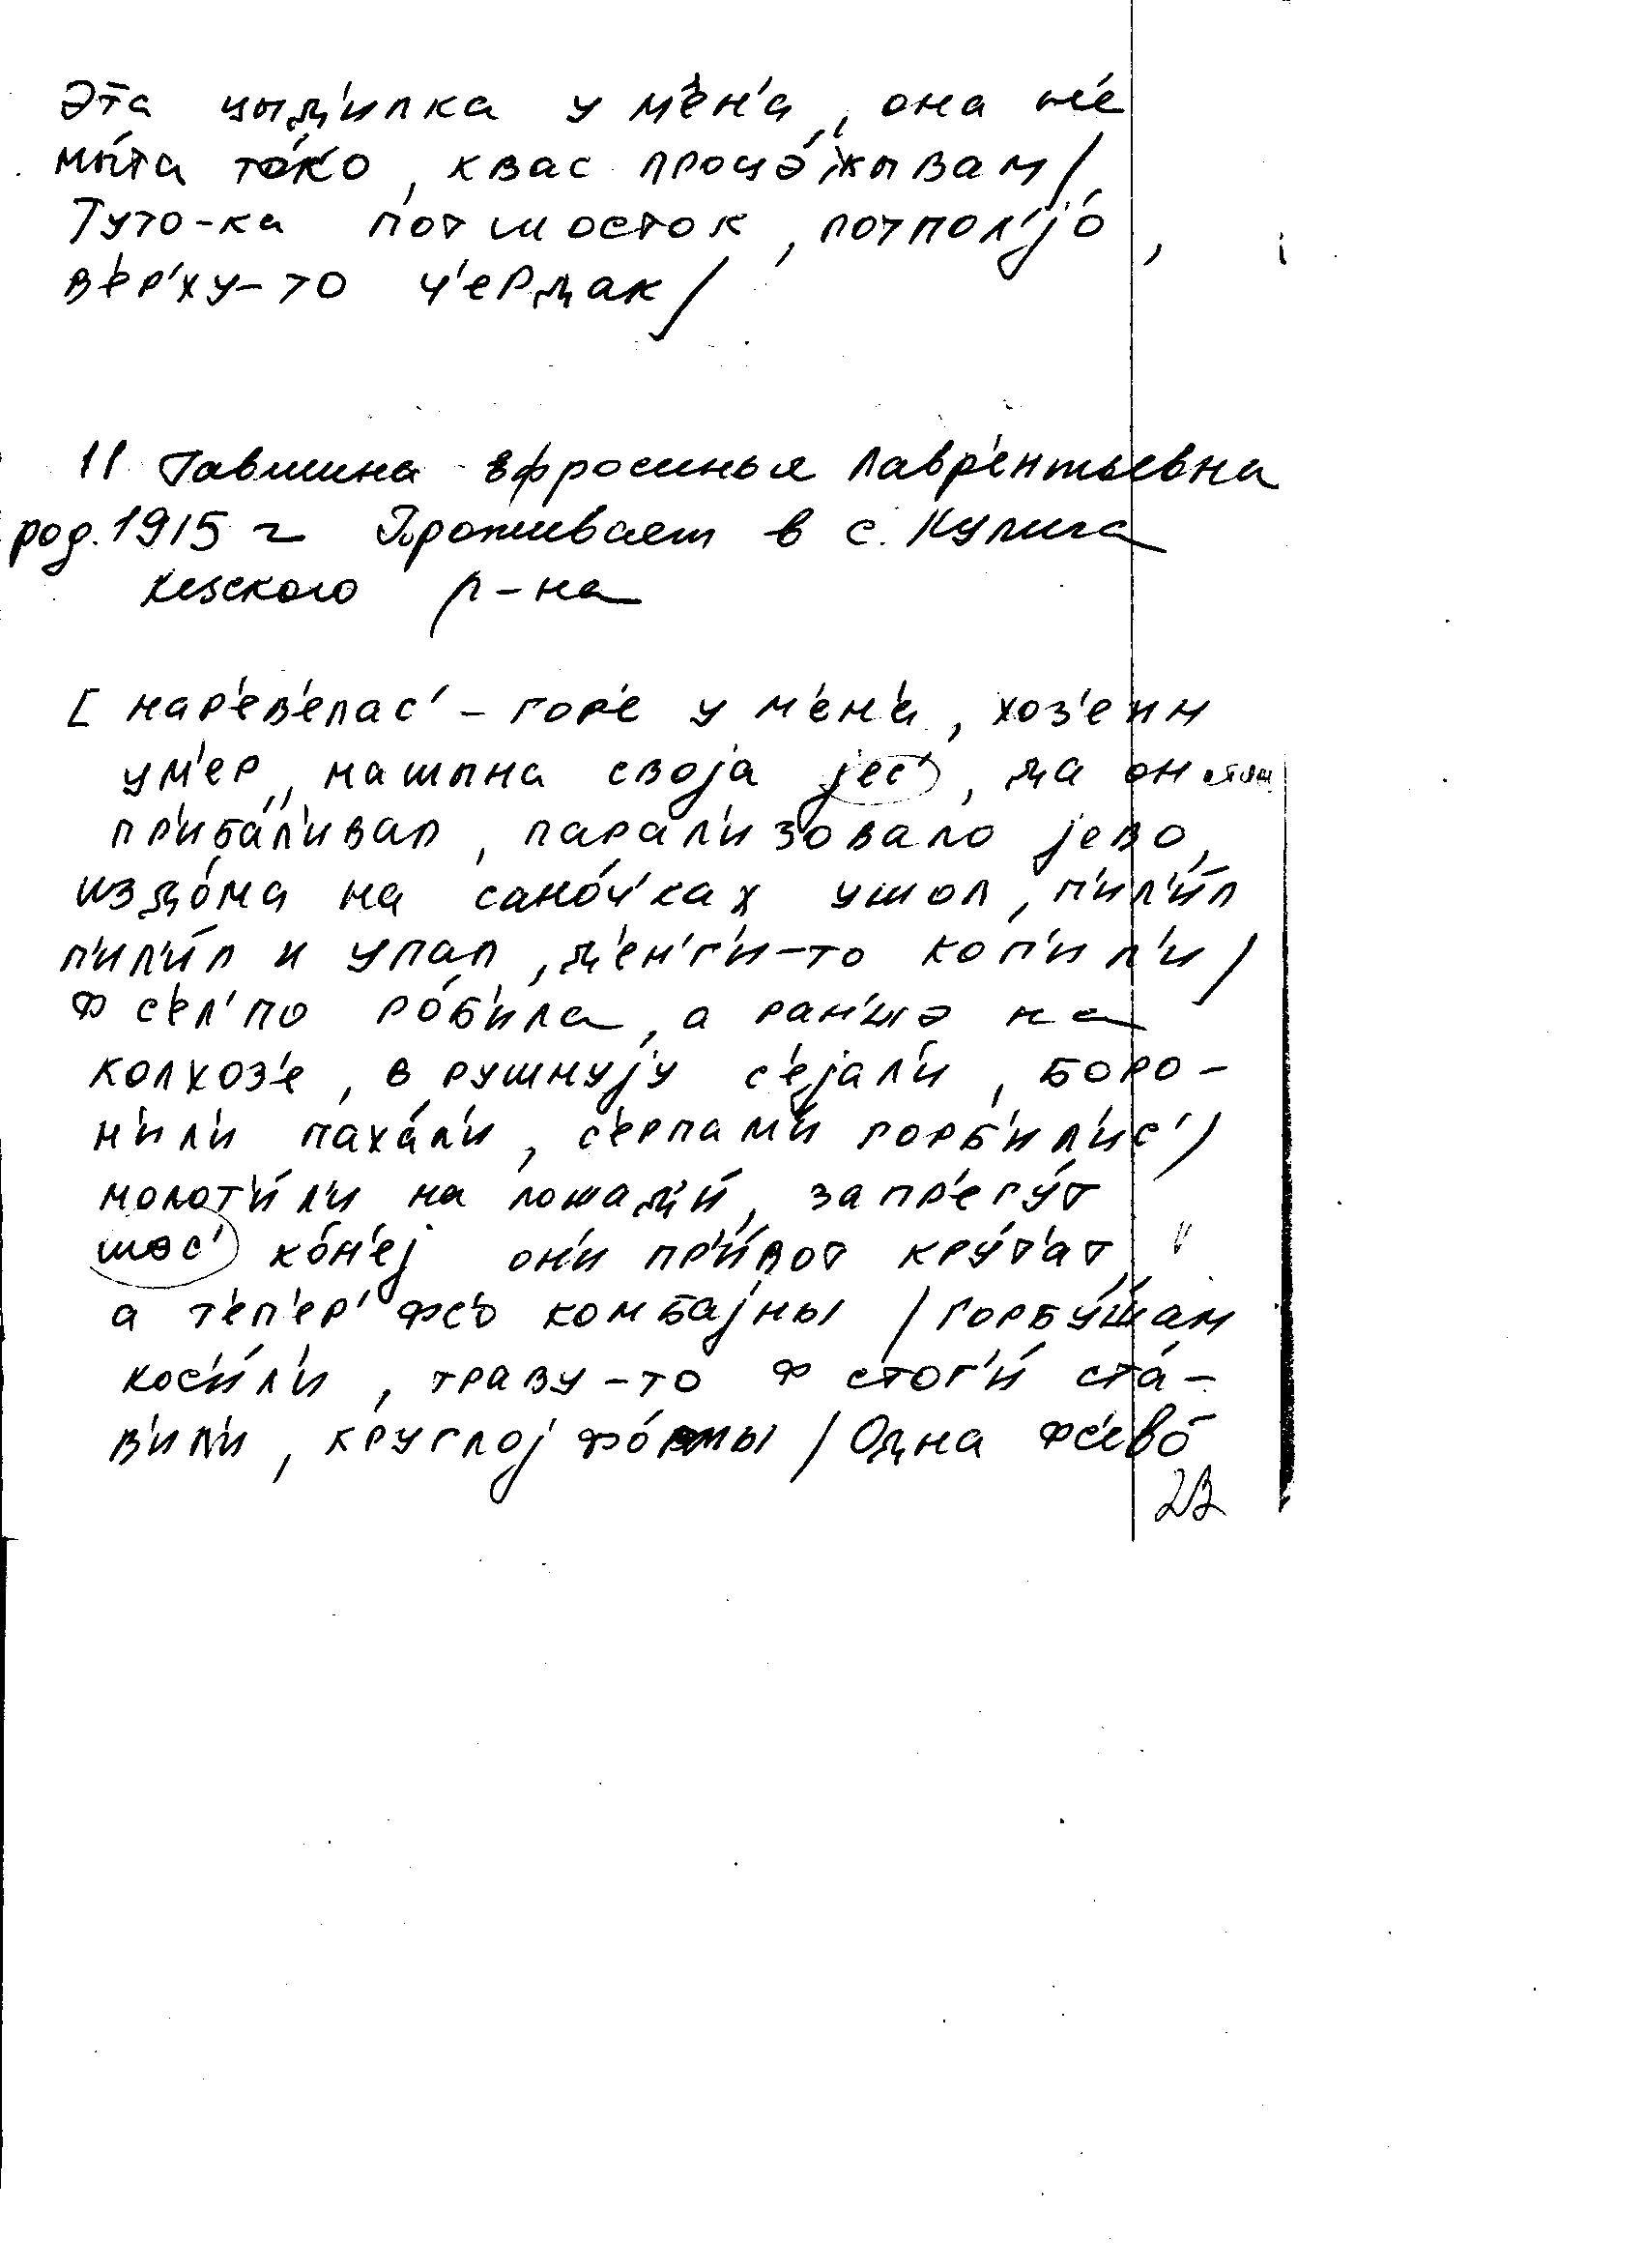 Эта цыд'илка у м'ен'а, она н'е
мы́та то́ко, квас процэ́жывам/
Туто-ка потшосток, потпол'jо́,
в'ер'ху-то ч'ердак/
11 Гавшина Ефросинья Лаврентьевна
род. 1915 г Проживает в с. Кулига
Кезского р-на
[нар'ев'елас' – гор'е у м'ен'а, хоз'еин
ум'ер, машына своjа jес', да он
пр'иба́л'ивал, парал'изовало jево,
из до́ма на сано́ч'ках ушол, п'ил'и́л
п'ил'и́л и упал, д'ен'г'и-то коп'ил'и/
Ф с'ел'по ро́б'ила, а ран'шэ на
колхоз'е, в рушнуjу с'еjал'и, боро-
н'ил'и паха́л'и, с'ерпам'и горб'ил'ис'/
молот'и́л'и на лошад'и́, запр'егу́т
шэс' ко́н'еj он'и пр'и́вод кру́т'ат,
а т'еп'ер' фс'о комбаjны / горбу́шам
кос'и́л'и, траву-то ф стог'и́ ста́-
в'ил'и, круглоj фо́рмы / Одна фс'ево́
23